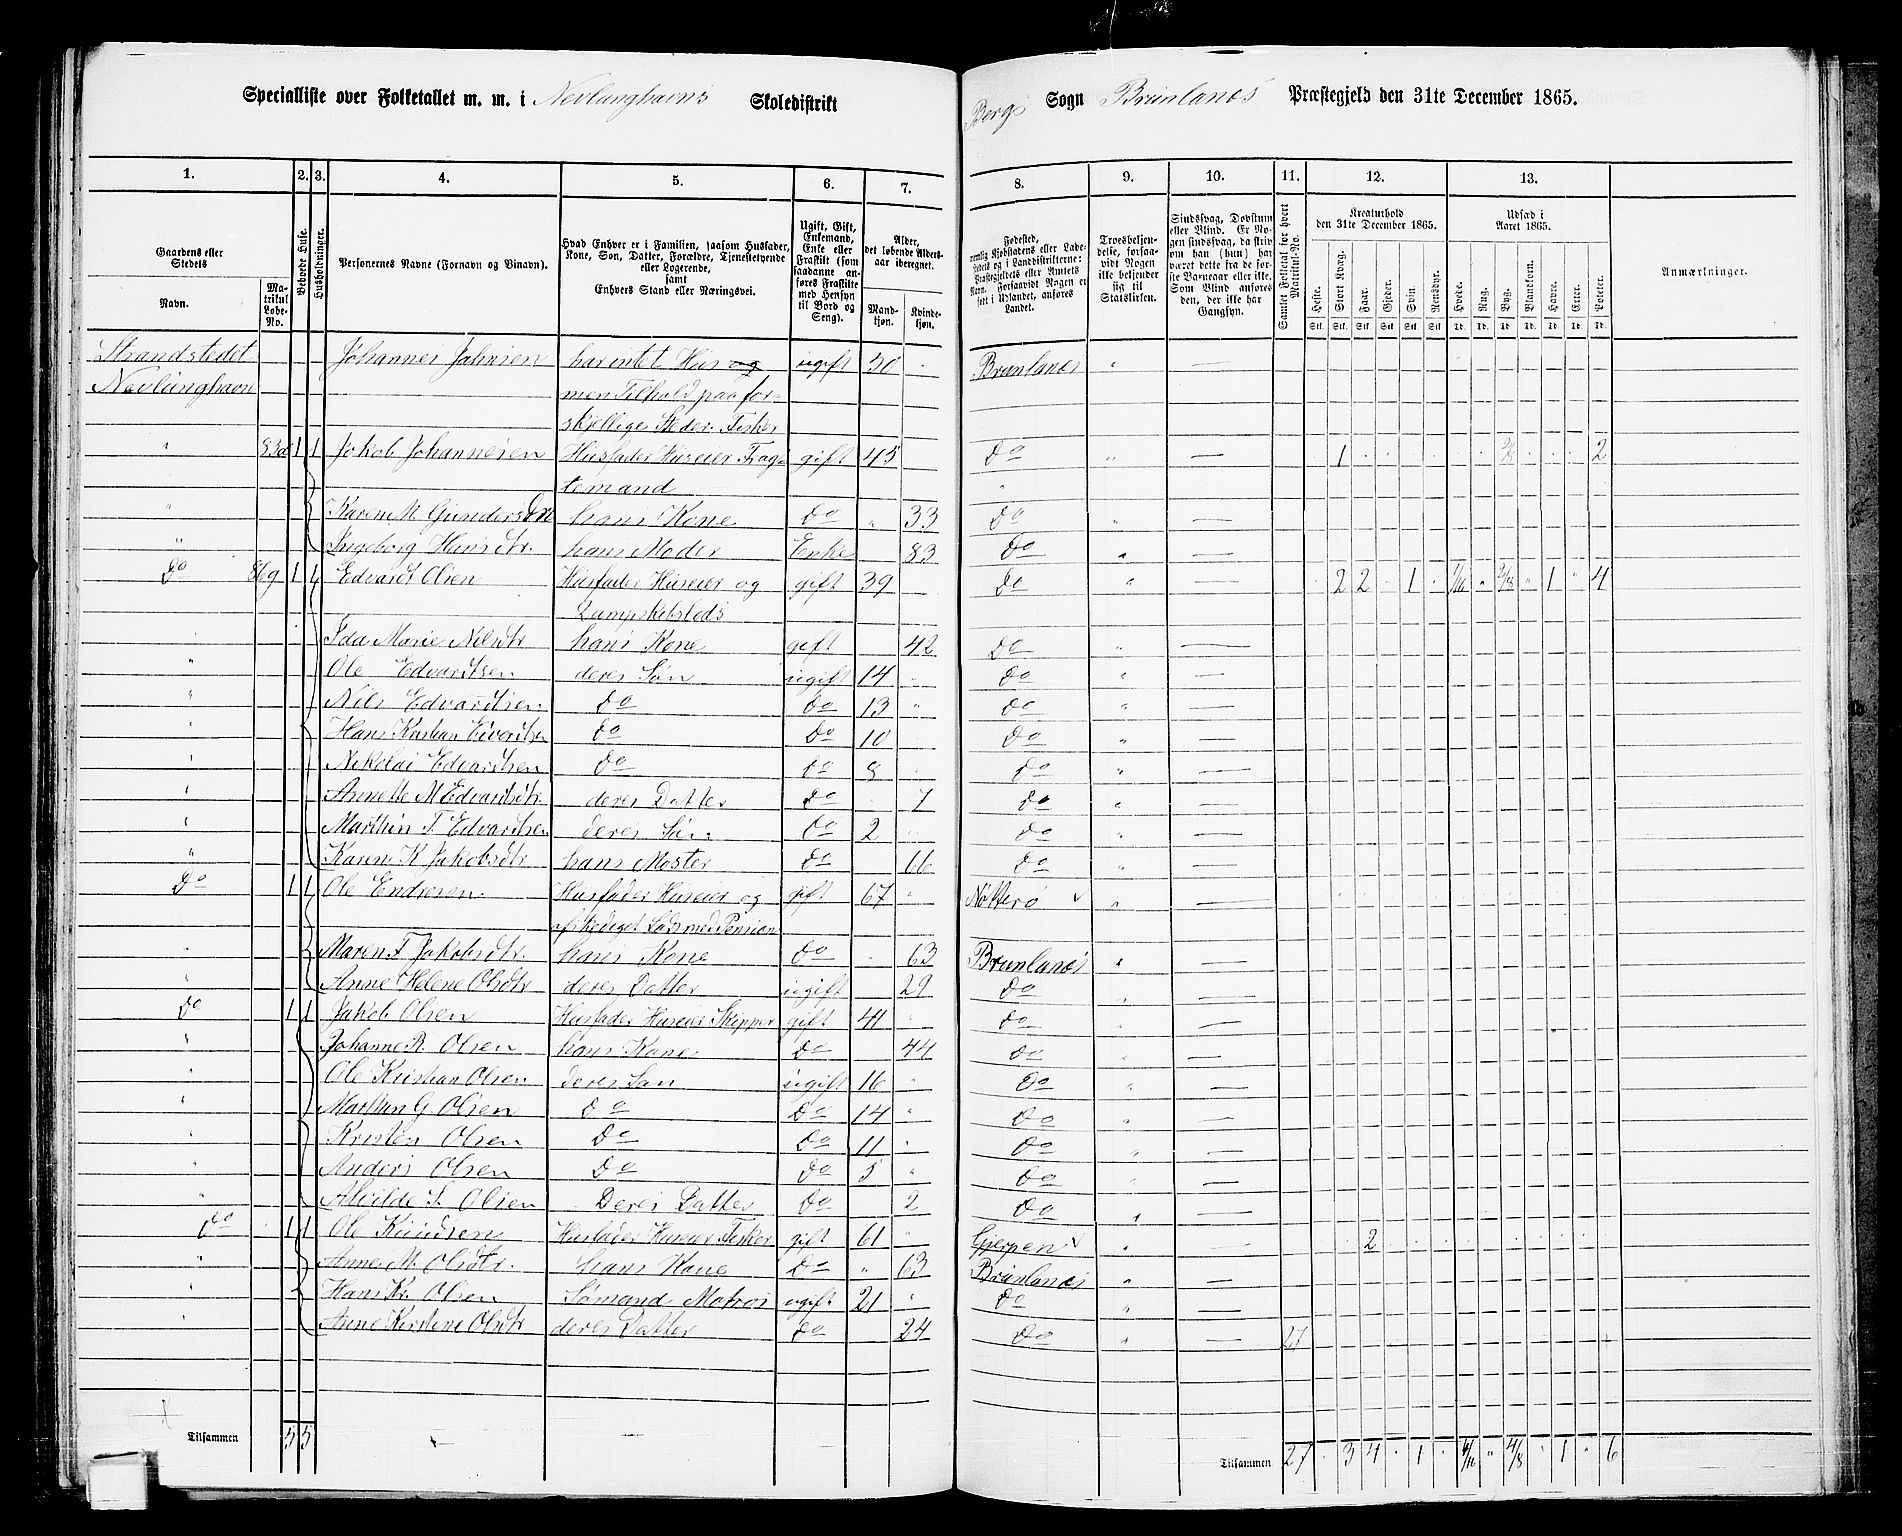 Specialliste over Folketallet m. m. i Nevlunghavns Skoledistrikt Bergs Sogn Brunlanes Præstegjeld den 31te December 1865.
1. 2. 3. 4. 5. 6. 7. 8. 9. 10. 11. 12. 13.
Gaardens eller Stedets Navn. Matrikul Løbe-No.
Beboede Huse.
Husholdninger.
Personernes Navne (Fornavn og Vinavn).
Hvad Enhver er i Familien, saasom Husfader, Kone, Søn, Datter, Forældre, Tjenestetyende eller Logerende, samt Enhvers Stand eller Næringsvei.
Ugift, Gift, Enkemand, Enke eller Fraskilt (som saadanne anføres Fraskilte med Hensyn til Bord og Seng).
Alder, det løbende Aldersaar iberegnet. Mandkjøn. Kvindekjøn.
Fødested,
Troesbekjendelse, forsaavidt Nogen ikke bekjender sig til Statskirken.
Sindssvag, Døvstum eller Blind.
Samlet Folketal for hvert Matrikul-No.
Kreaturhold den 31te December 1865. Heste. Stort Kvæg. Faar. Gjeder. Svin. Rensdyr.
Udsæd i Aaret 1865. Hvede. Rug. Byg. Blandkorn. Havre. Erter. Poteter.
Anmærkninger.
Strandstedet Johannes Jahnsen har intet Hus og ugift 50 Brunlanes " —
Nevlunghavn men Tilhold paa for-
skjellige Steder. Fisker
" 83a 1 1 Jakob Johannesen Husfader Huseier Frag- gift 45 Do " — 1 2/8 2
temand
" Karen M Gundersdtr hans Kone Do " 33 Do " —
" Ingeborg Hansdtr. hans Moder Enke 83 Do " —
Do 86g 1 1 Edvardt Olsen Husfader Huseier og gift 39 Do " — 2 2 1 1/16 2/8 1 4
Lampskibslods
Ida Marie Nilsdtr hans Kone gift 42 Do " —
" Ole Edvardtsen deres Søn ugift 14 Do " —
" Nils Edvardtsen Do Do 13 Do " —
" Hans Kristian Edvardtsen Do Do 10 Do " —
" Nikolai Edvardtsen Do Do 8 Do " —
" Annette M Edvardtsdtr. deres Datter Do 7 Do " —
" Marthin T. Edvardtsen deres Søn Do 2 Do " —
" Karen K Jakobsdtr hans Moster Do 66 Do " —
Do 1 1 Ole Endresen Husfader Huseier og gift 67 Nøtterø " —
afskediget Lods med Pension
Maren T Jakobsdtr. hans Kone Do 63 Brunlanes " —
" Anne Helene Olsdtr deres Datter ugift 29 Do " —
Do 1 1 Jakob Olsen Husfader Huseier Skipper gift 41 Do " —
" Johanne R. Olsen hans Kone Do 44 Do " —
" Ole Kristian Olsen deres Søn ugift 16 Do " —
" Marthin G. Olsen Do Do 14 Do " —
" Kristen Olsen Do Do 11 Do " —
" Anders Olsen Do Do 5 Do " —
" S. Olsen Deres Datter Do 2 Do " —
Do 1 1 Ole Knudsen Husfader Huseier Fisker gift 61 Gjerpen " — 2
" Anne M. Olsdtr. hans Kone Do " 63 Brunlanes " —
" Hans Kr. Olsen Sømand Matros ugift 21 Do " —
" Anne Kirstine Olsdtr deres Datter Do 24 Do " — 27
Tilsammen 5 5 Tilsammen 27 3 4 1 4/8 1 6